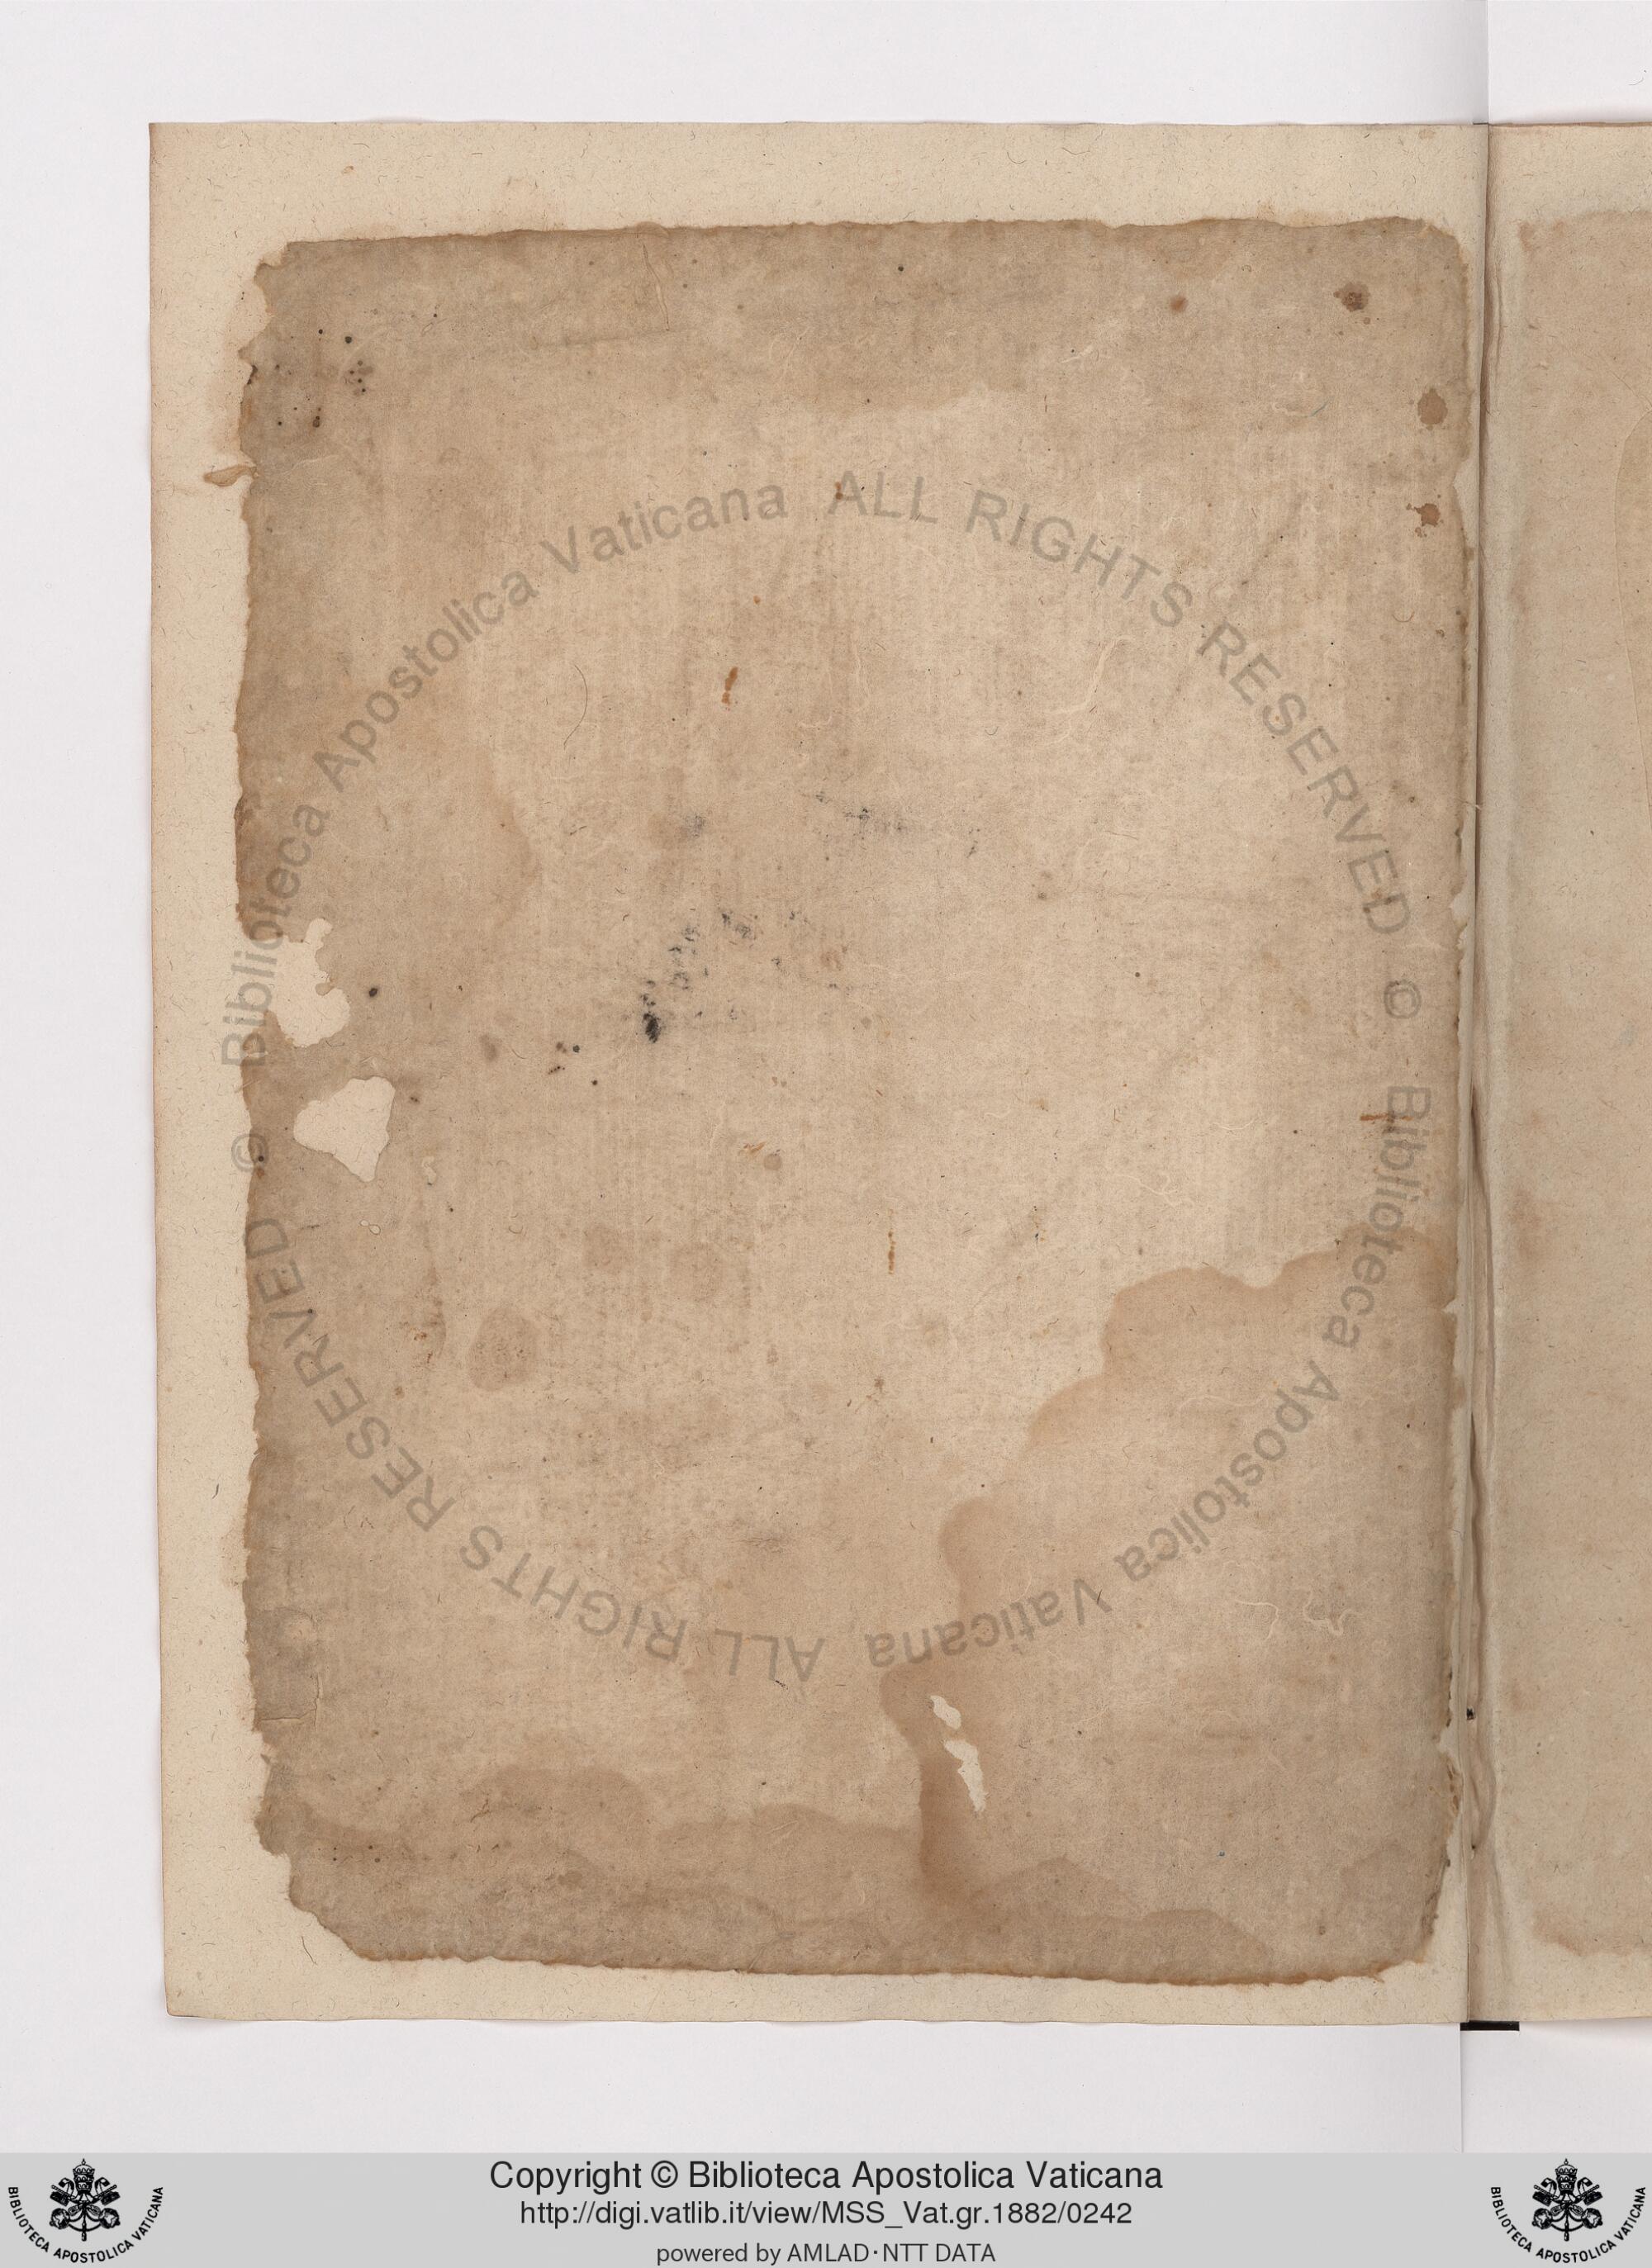 Biblioteca Apostolica Vaticana ALL RIGHTS RESERVED ©
Biblioteca Apostolica Vaticana ALL RIGHTS RESERVED ©
Copyright © Biblioteca Apostolica Vaticana
http://digi.vatlib.it/view/MSS_Vat.gr.1882/0242
powered by AMLAD·NTT DATA
BIBLIOTECA APOSTOLICA VATICANA
BIBLIOTECA APOSTOLICA VATICANA